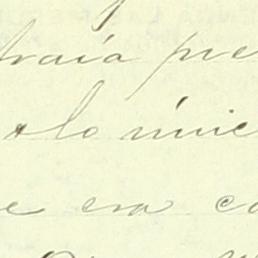 traía pre
lo únic
e era co